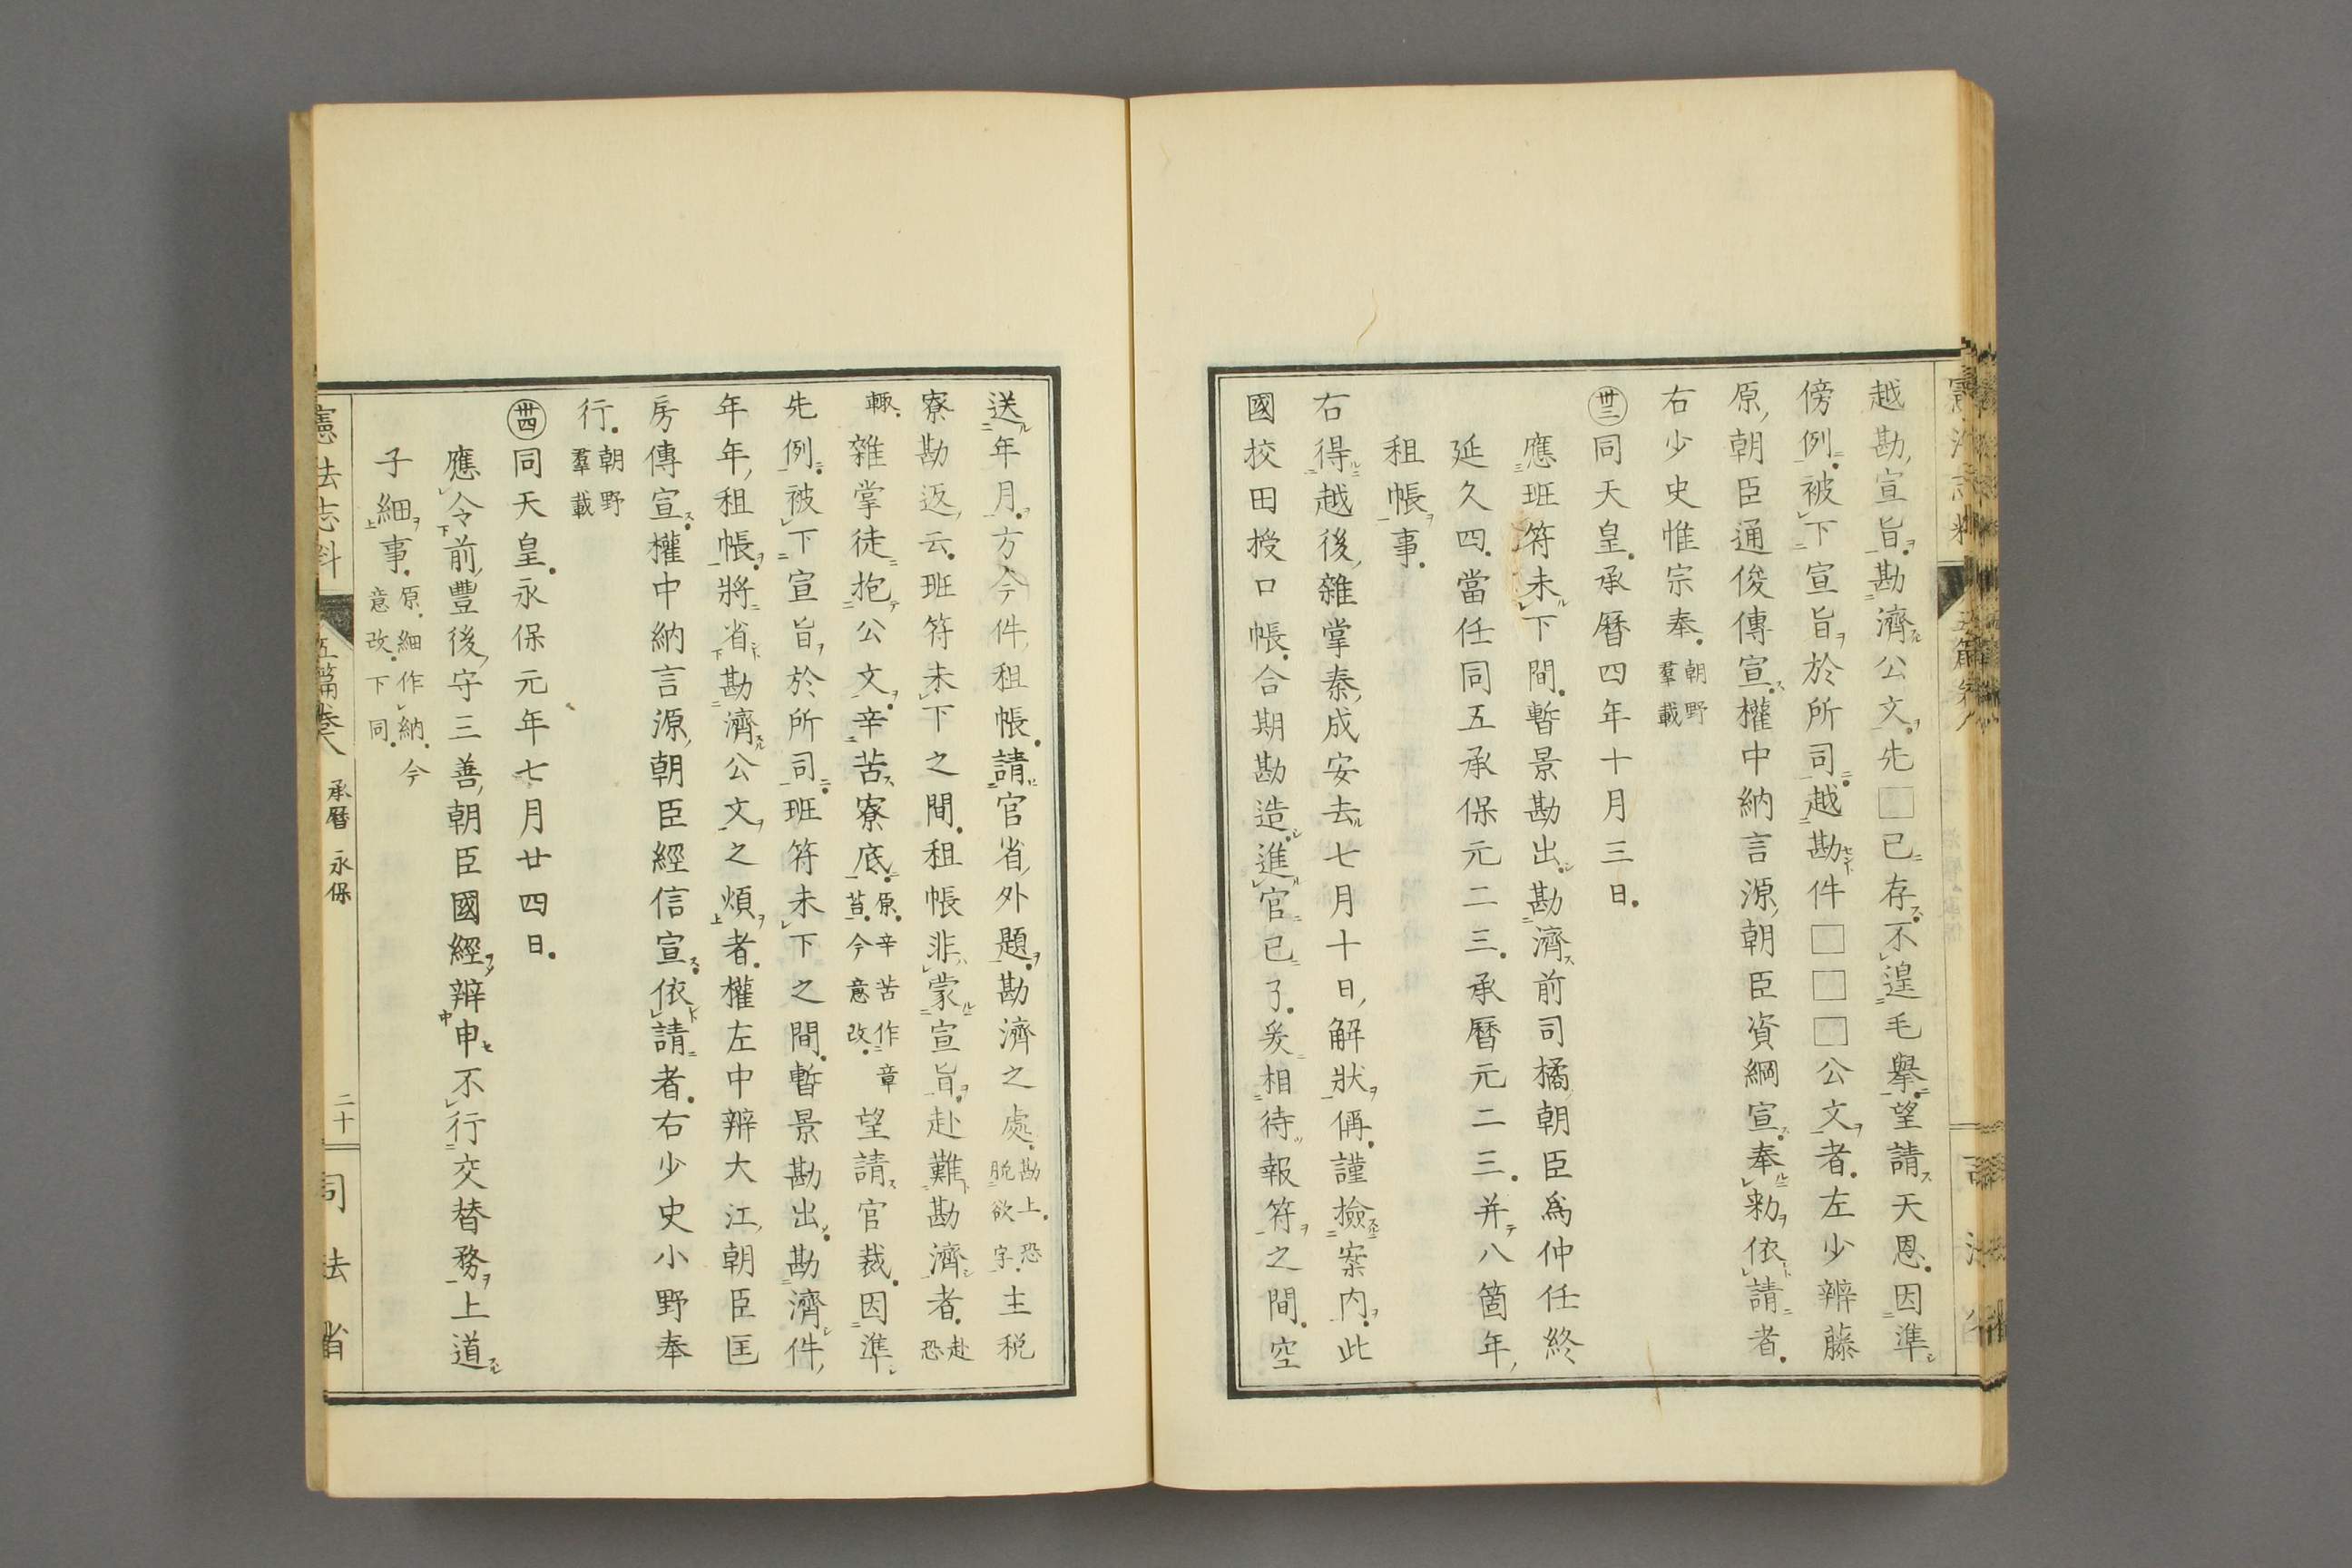 越勘宣旨勘濟公文先□已存不遑毛擧望請天恩因準
傍例被下宣旨於所司越勘件□□□公文者左少辨藤
原朝臣通俊傳宣權中納言源朝臣資綱宣奉勅依請者
右少史惟宗奉朝野羣載
卅三同天皇承曆四年十月三日
應班符未下間暫景勘出勘濟前司橘朝臣爲仲任終
延久四當任同五承保元二三承曆元二三并八箇年
租帳事
右得越後雜掌秦成安去七月十日解狀偁謹檢案內此
國校田授口帳合期勘造進官已了爰相待報符之間空
送年月方今件租帳請官省外題勘濟之處勘上恐脫欲字主税
寮勘返云班符未下之間租帳非蒙宣旨赴難勘濟者赴恐
輙雜掌徒抱公文辛苦寮底原辛苦作章苔今意改望請官裁因準
先例被下宣旨於所司班符未下之間暫景勘出勘濟件
年年租帳將省勘濟公文之煩者權左中辨大江朝臣匡
房傳宣權中納言源朝臣經信宣依請者右少史小野奉
行朝野羣載
卅四同天皇永保元年七月廿四日
應令前豐後守三善朝臣國經辨申不行交替務上道
子細事原細作納今意改下同
憲法志料 五篇卷八 承曆 永保 二十 司法省